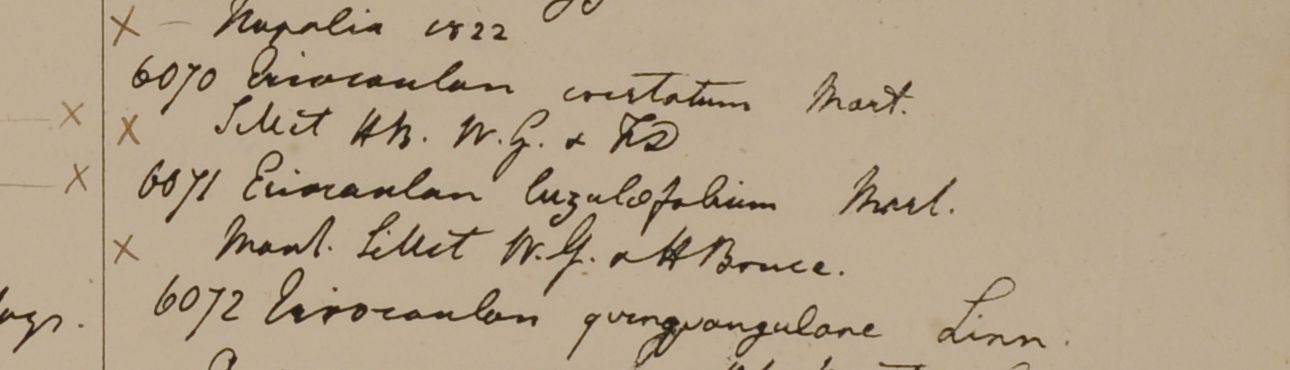 x — Napalia 1822
6070 Eriocaulon cristatum Mart.
x Sillet HB. W.G. & FD
6071 Eriocaulon luzulæfolium Mart.
x Mont. Sillet W.G. & H Bruce.
6072 Eriocaulon quinquangulare Linn.